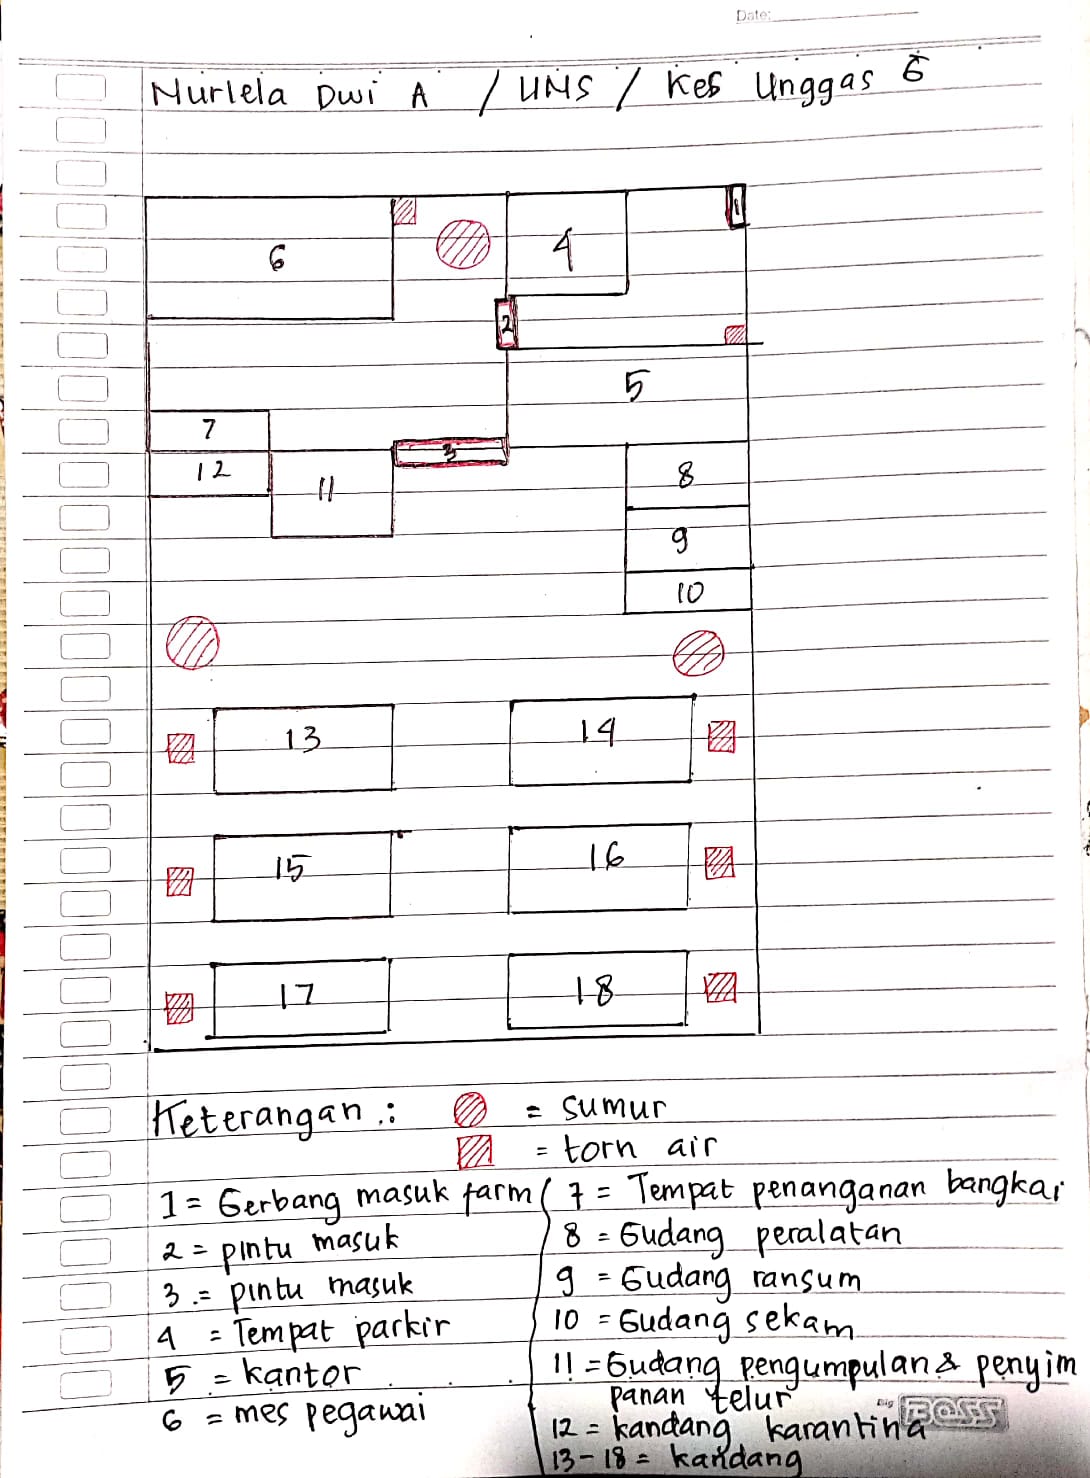 Date:
Nurlela Dwi A / UNS / Kes Unggas 6
1
6
4
2
5
7
3
12
11
8
9
10
13
14
15
16
17
18
Keterangan :
= sumur
= torn air
1 = Gerbang masuk farm
2 = pintu masuk
3 = pintu masuk
4 = Tempat parkir
5 = kantor
6 = mes pegawai
7 = Tempat penanganan bangkai
8 = Gudang peralatan
9 = Gudang ransum
10 = Gudang sekam
11 = Gudang pengumpulan & penyim
panan telur
12 = kandang karantina
13-18 = kandang
Big BOSS